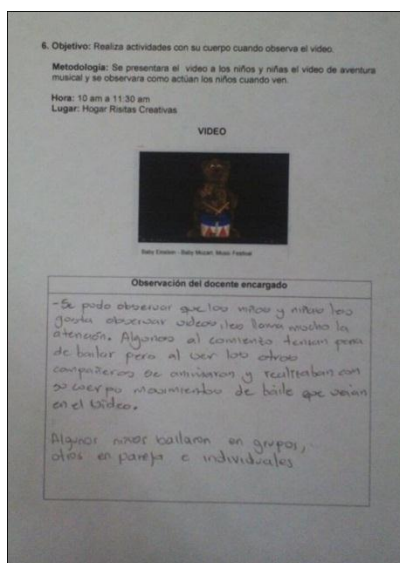 6. Objetivo: Realiza actividades con su cuerpo cuando observa el video.
Metodología: Se presentara el video a los niños y niñas el video de aventura
musical y se observara como actúan los niños cuando ven.
Hora: 10 am a 11:30 am
Lugar: Hogar Risitas Creativas
VIDEO
Baby Einstein - Baby Mozart, Music Festival
Observación del docente encargado
-Se pudo observar que los niños y niñas les
gusta observar videos, les llama mucho la
atención. Algunos al comienzo tenian pena
de bailar pero al ver los otros
compañeros se animaron y realizaban con
su cuerpo movimientos de baile que veian
en el video.
Algunos niños bailaron en grupos,
otros en pareja e individuales